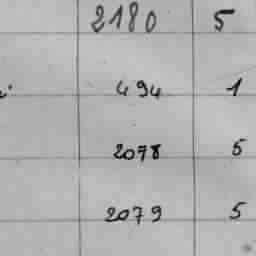 2180 5
494 1
2078 5
2079 5